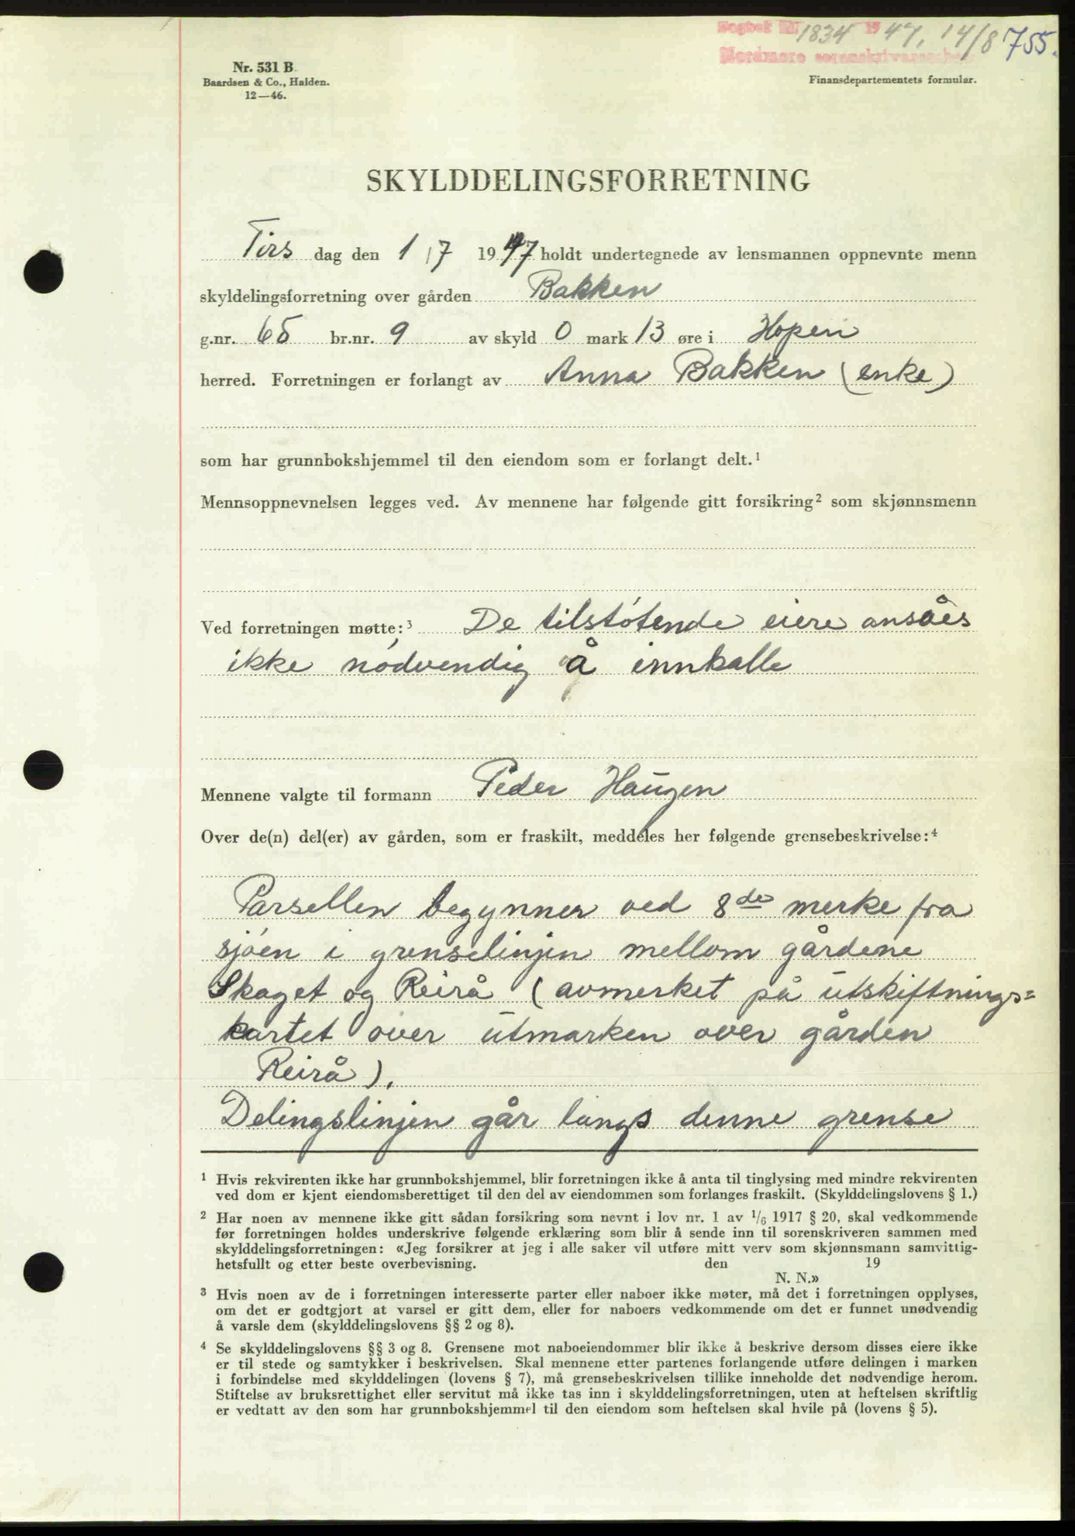 Dagbok Nr. 1834 1947, 14/8 755.
Nordmøre sorenskriverembede
Nr. 531 B
Baardsen & Co., Halden.
12—46.
Finansdepartementets formular.
SKYLDDELINGSFORRETNING
Tirs dag den 1/7 1947 holdt undertegnede av lensmannen oppnevnte menn
skyldelingsforretning over gården Bakken
g.nr. 65 br.nr. 9 av skyld 0 mark 13 øre i Hopen
herred. Forretningen er forlangt av Anna Bakken (enke)
som har grunnbokshjemmel til den eiendom som er forlangt delt.¹
Mennsoppnevnelsen legges ved. Av mennene har følgende gitt forsikring² som skjønnsmenn
Ved forretningen møtte:³ De tilstøtende eiere ansåes
ikke nødvendig å innkalle
Mennene valgte til formann Peder Haugen
Over de(n) del(er) av gården, som er fraskilt, meddeles her følgende grensebeskrivelse:⁴
Parsellen begynner ved 8de merke fra
sjøen i grenselinjen mellom gårdene
Skaget og Reirå (avmerket på utskiftnings=
kartet over utmarken over gården
Reirå).
Delingslinjen går langs denne grense
¹ Hvis rekvirenten ikke har grunnbokshjemmel, blir forretningen ikke å anta til tinglysing med mindre rekvirenten
ved dom er kjent eiendomsberettiget til den del av eiendommen som forlanges fraskilt. (Skylddelingslovens § 1.)
² Har noen av mennene ikke gitt sådan forsikring som nevnt i lov nr. 1 av 1/6 1917 § 20, skal vedkommende
før forretningen holdes underskrive følgende erklæring som blir å sende inn til sorenskriveren sammen med
skylddelingsforretningen: «Jeg forsikrer at jeg i alle saker vil utføre mitt verv som skjønnsmann samvittig-
hetsfullt og etter beste overbevisning. den 19
N. N.»
³ Hvis noen av de i forretningen interesserte parter eller naboer ikke møter, må det i forretningen opplyses,
om det er godtgjort at varsel er gitt dem, eller for naboers vedkommende om det er funnet unødvendig
å varsle dem (skylddelingslovens §§ 2 og 8).
⁴ Se skylddelingslovens §§ 3 og 8. Grensene mot naboeiendommer blir ikke å beskrive dersom disses eiere ikke
er til stede og samtykker i beskrivelsen. Skal mennene etter partenes forlangende utføre delingen i marken
i forbindelse med skylddelingen (lovens § 7), må grensebeskrivelsen tillike inneholde det nødvendige herom.
Stiftelse av bruksrettighet eller servitut må ikke tas inn i skylddelingsforretningen, uten at heftelsen skriftlig
er vedtatt av den som har grunnbokshjemmel til den eiendom som heftelsen skal hvile på (lovens § 5).